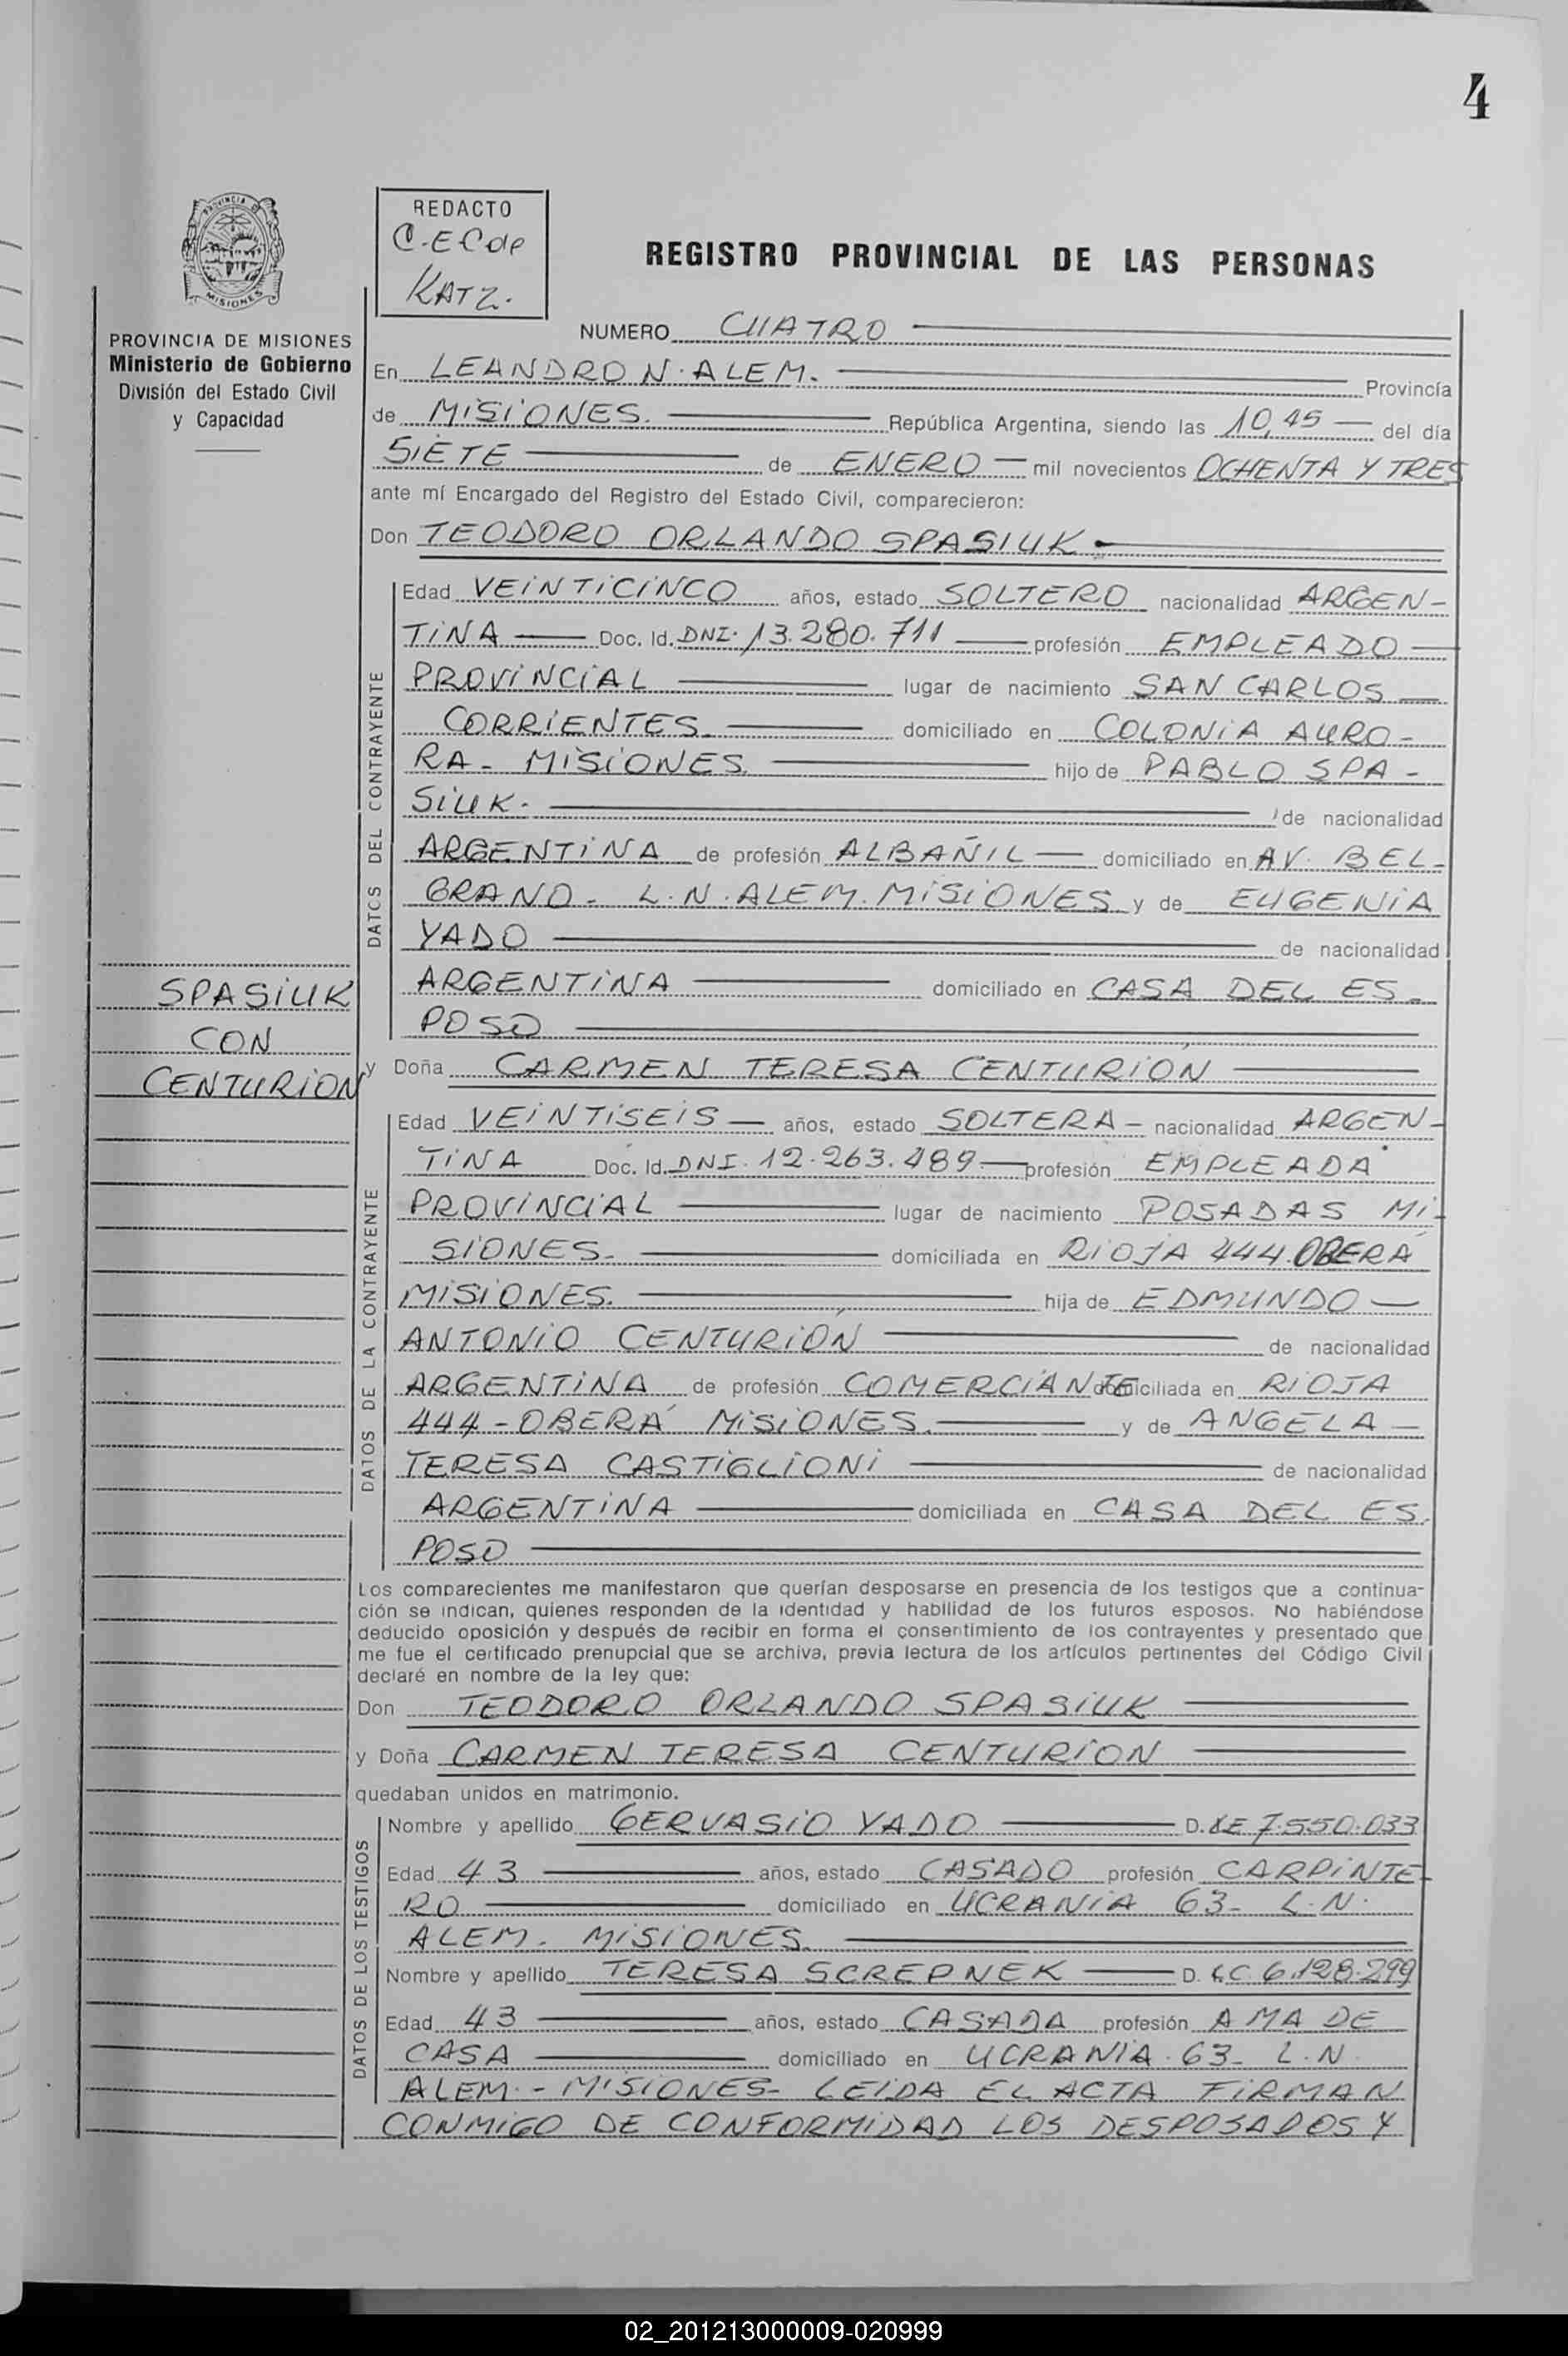 4
PROVINCIA DE
MISIONES
REDACTO
C.E.C de
KATZ.
REGISTRO PROVINCIAL DE LAS PERSONAS
PROVINCIA DE MISIONES
Ministerio de Gobierno
División del Estado Civil
y Capacidad
NUMERO CUATRO
En LEANDRO N. ALEM. Provincia
de MISIONES. República Argentina, siendo las 10,45 del día
SIETE de ENERO mil novecientos OCHENTA Y TRES
ante mí Encargado del Registro del Estado Civil, comparecieron:
Don TEODORO ORLANDO SPASIUK.
DATOS DEL CONTRAYENTE
Edad VEINTICINCO años, estado SOLTERO nacionalidad ARGEN-
TINA Doc. Id. DNI. 13.280.711 profesión EMPLEADO
PROVINCIAL lugar de nacimiento SAN CARLOS
CORRIENTES. domiciliado en COLONIA AURO-
RA - MISIONES. hijo de PABLO SPA-
SIUK. de nacionalidad
ARGENTINA de profesión ALBAÑIL domiciliado en AV. BEL-
GRANO - L.N. ALEM. MISIONES y de EUGENIA
YADO de nacionalidad
ARGENTINA domiciliado en CASA DEL ES-
POSO
SPASIUK
CON
CENTURION
y Doña CARMEN TERESA CENTURIÓN
DATOS DE LA CONTRAYENTE
Edad VEINTISEIS años, estado SOLTERA - nacionalidad ARGEN-
TINA Doc. Id. DNI. 12.263.489. profesión EMPLEADA
PROVINCIAL lugar de nacimiento POSADAS MI-
SIONES. domiciliada en RIOJA 444. OBERÁ
MISIONES. hija de EDMUNDO
ANTONIO CENTURIÓN de nacionalidad
ARGENTINA de profesión COMERCIANTE domiciliada en RIOJA
444 - OBERÁ MISIONES. y de ANGELA
TERESA CASTIGLIONI de nacionalidad
ARGENTINA domiciliada en CASA DEL ES.
POSO
Los comparecientes me manifestaron que querían desposarse en presencia de los testigos que a continua-
ción se indican, quienes responden de la identidad y habilidad de los futuros esposos. No habiéndose
deducido oposición y después de recibir en forma el consentimiento de los contrayentes y presentado que
me fue el certificado prenupcial que se archiva, previa lectura de los artículos pertinentes del Código Civil
declaré en nombre de la ley que:
Don TEODORO ORLANDO SPASIUK
y Doña CARMEN TERESA CENTURION
quedaban unidos en matrimonio.
DATOS DE LOS TESTIGOS
Nombre y apellido GERVASIO YADO D. LE 7.550.033
Edad 43 años, estado CASADO profesión CARPINTE-
RO domiciliado en UCRANIA 63 - L.N.
ALEM. MISIONES.
Nombre y apellido TERESA SCREPNEK D. LC 6.128.299
Edad 43 años, estado CASADA profesión AMA DE
CASA domiciliado en UCRANIA 63 - L.N.
ALEM - MISIONES - LEIDA EL ACTA FIRMAN
CONMIGO DE CONFORMIDAD LOS DESPOSADOS Y
02_201213000009-020999